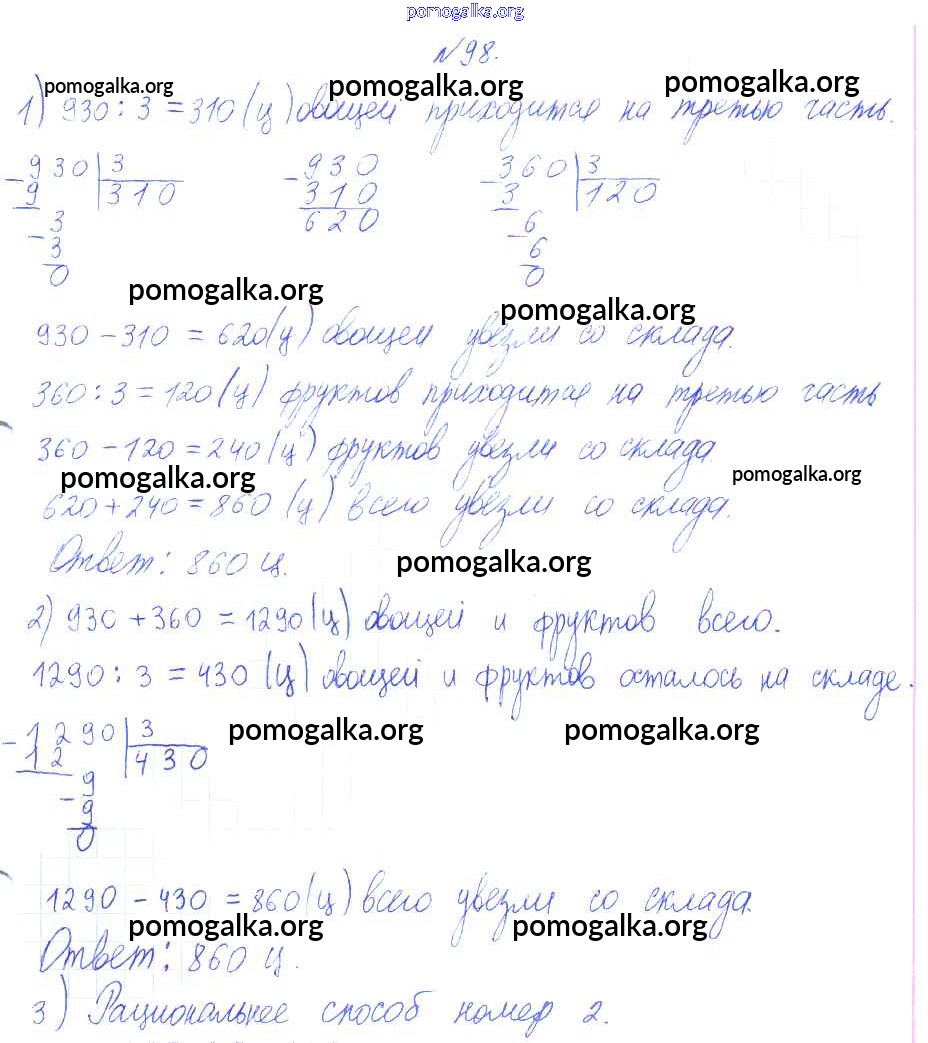 pomogalka.org
№98.
pomogalka.org pomogalka.org pomogalka.org
1) 930 : 3 = 310 (ц) овощей приходится на третью часть.
- 930 | 3 - 930 - 360 | 3
9 310 310 3 120
- 3 620 - 6
3 6
0 0
pomogalka.org pomogalka.org
930 - 310 = 620 (ц) овощей увезли со склада.
360 : 3 = 120 (ц) фруктов приходится на третью часть
360 - 120 = 240 (ц) фруктов увезли со склада.
pomogalka.org pomogalka.org
620 + 240 = 860 (ц) всего увезли со склада.
Ответ: 860 ц.
pomogalka.org
2) 930 + 360 = 1290 (ц) овощей и фруктов всего.
1290 : 3 = 430 (ц) овощей и фруктов осталось на складе.
pomogalka.org pomogalka.org
- 1290 | 3
12 430
- 9
9
0
1290 - 430 = 860 (ц) всего увезли со склада.
pomogalka.org pomogalka.org
Ответ: 860 ц.
3) Рациональнее способ номер 2.